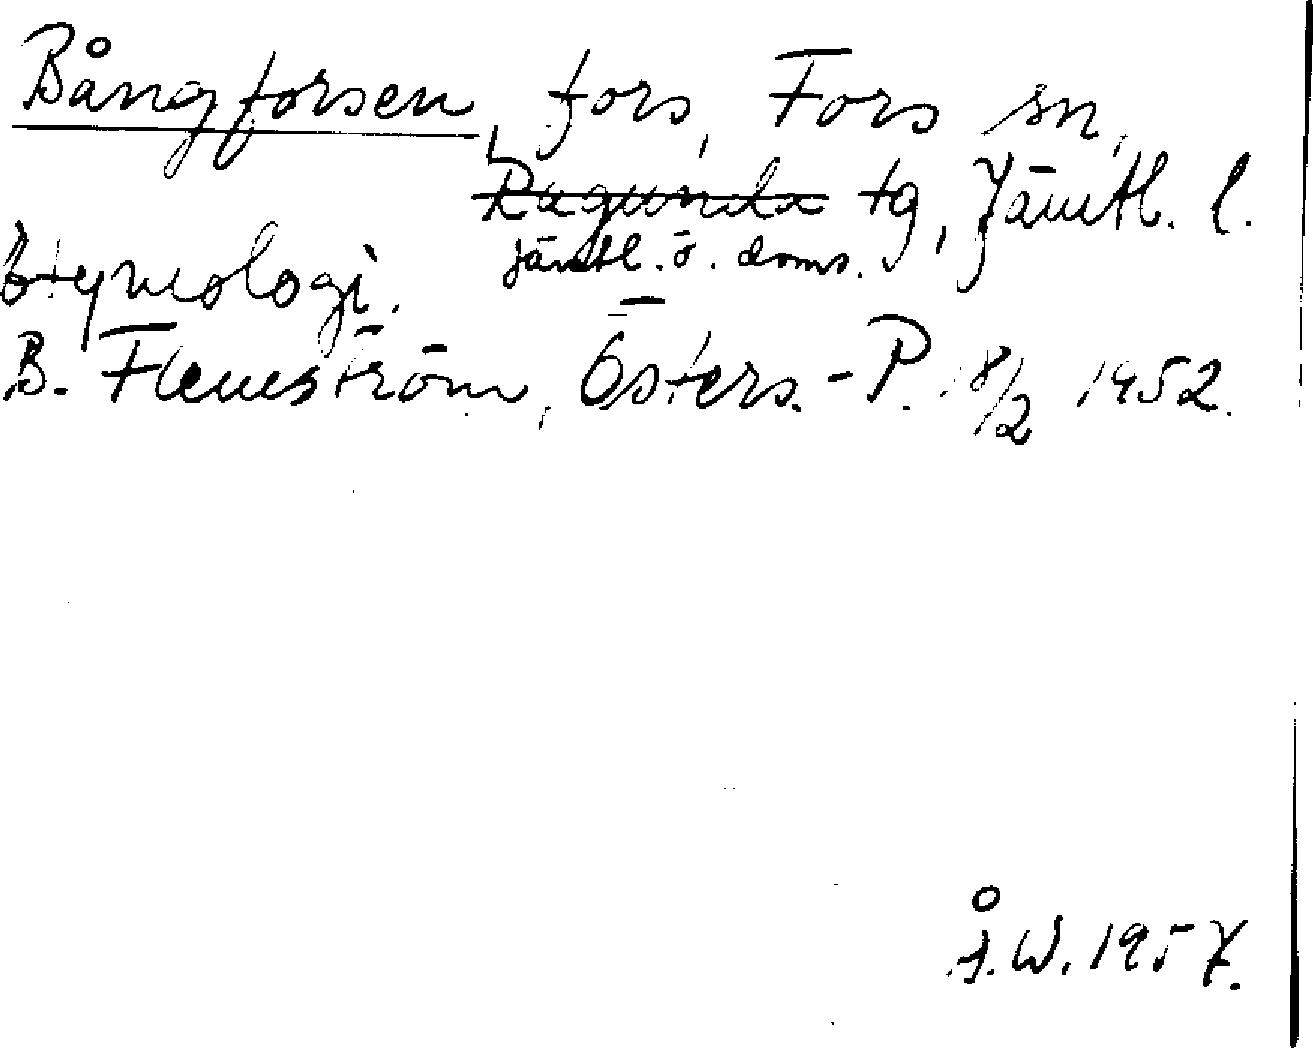 Bångforsen, fors, Fors sn,
Ragunda tg, Jämtl. l.
Jämtl. ö. doms.
Etymologi.
B. Flemström, ÖsterS.-P. 18/2 1952.
Å.W. 1957.